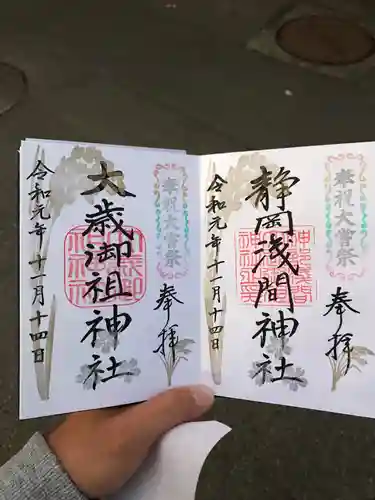 奉祝大嘗祭
静岡浅間神社
奉拝
令和元年十一月十四日
奉祝大嘗祭
大歳御祖神社
奉拝
令和元年十一月十四日